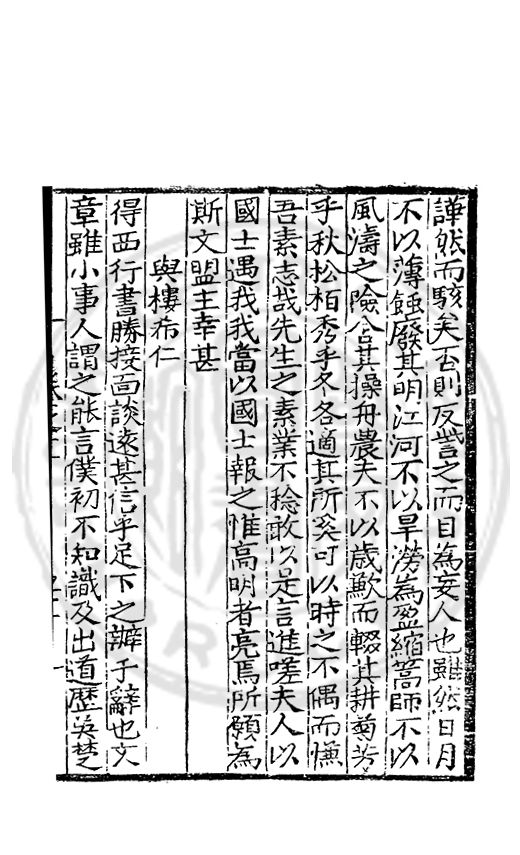 譁然而駭矣否則反訾之而目為妄人也雖然日月
不以薄蝕廢其明江河不以旱澇為盈縮篙師不以
風濤之險舍其操舟農夫不以歲歉而輟其耕菊芳
乎秋松柏秀乎冬各適其所奚可以時之不偶而慊
吾素志哉先生之素業不稔敢以是言進嗟夫人以
國士遇我我當以國士報之惟高明者亮焉所願為
斯文盟主幸甚
與樓希仁
得西行書勝接面談遠甚信乎足下之辦于辭也文
章雖小事人謂之能言僕初不知識及出道歷吳楚